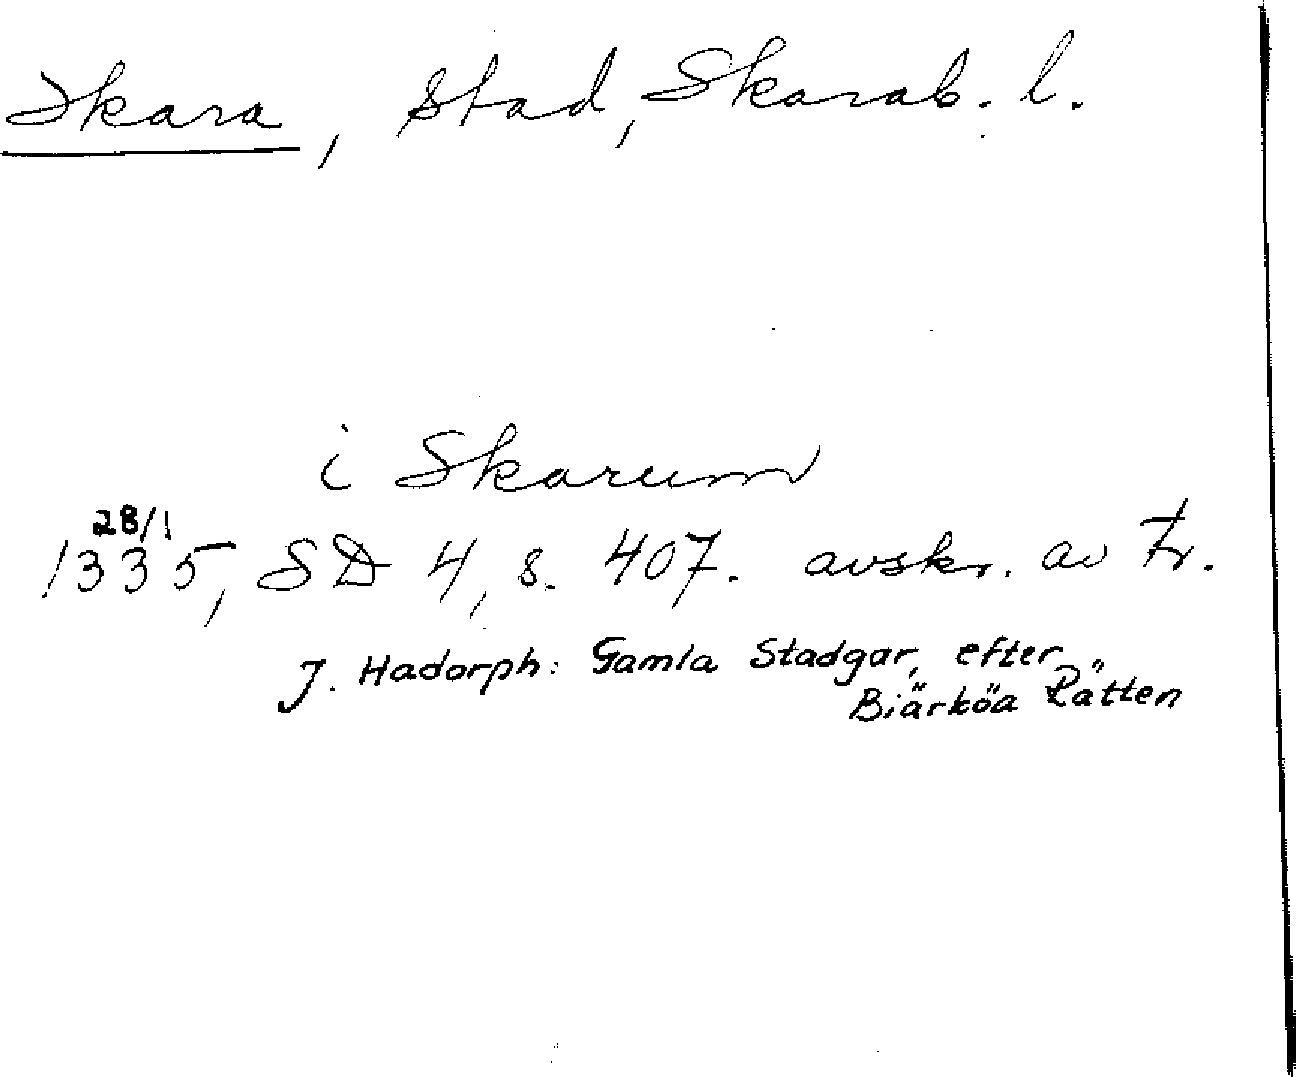 Skara, stad, Skarab. l.
i Skarum
28/1
1335, SD 4, s. 407. avskr. av tr.
J. Hadorph: Gamla Stadgar, efter
Biärköa Rätten